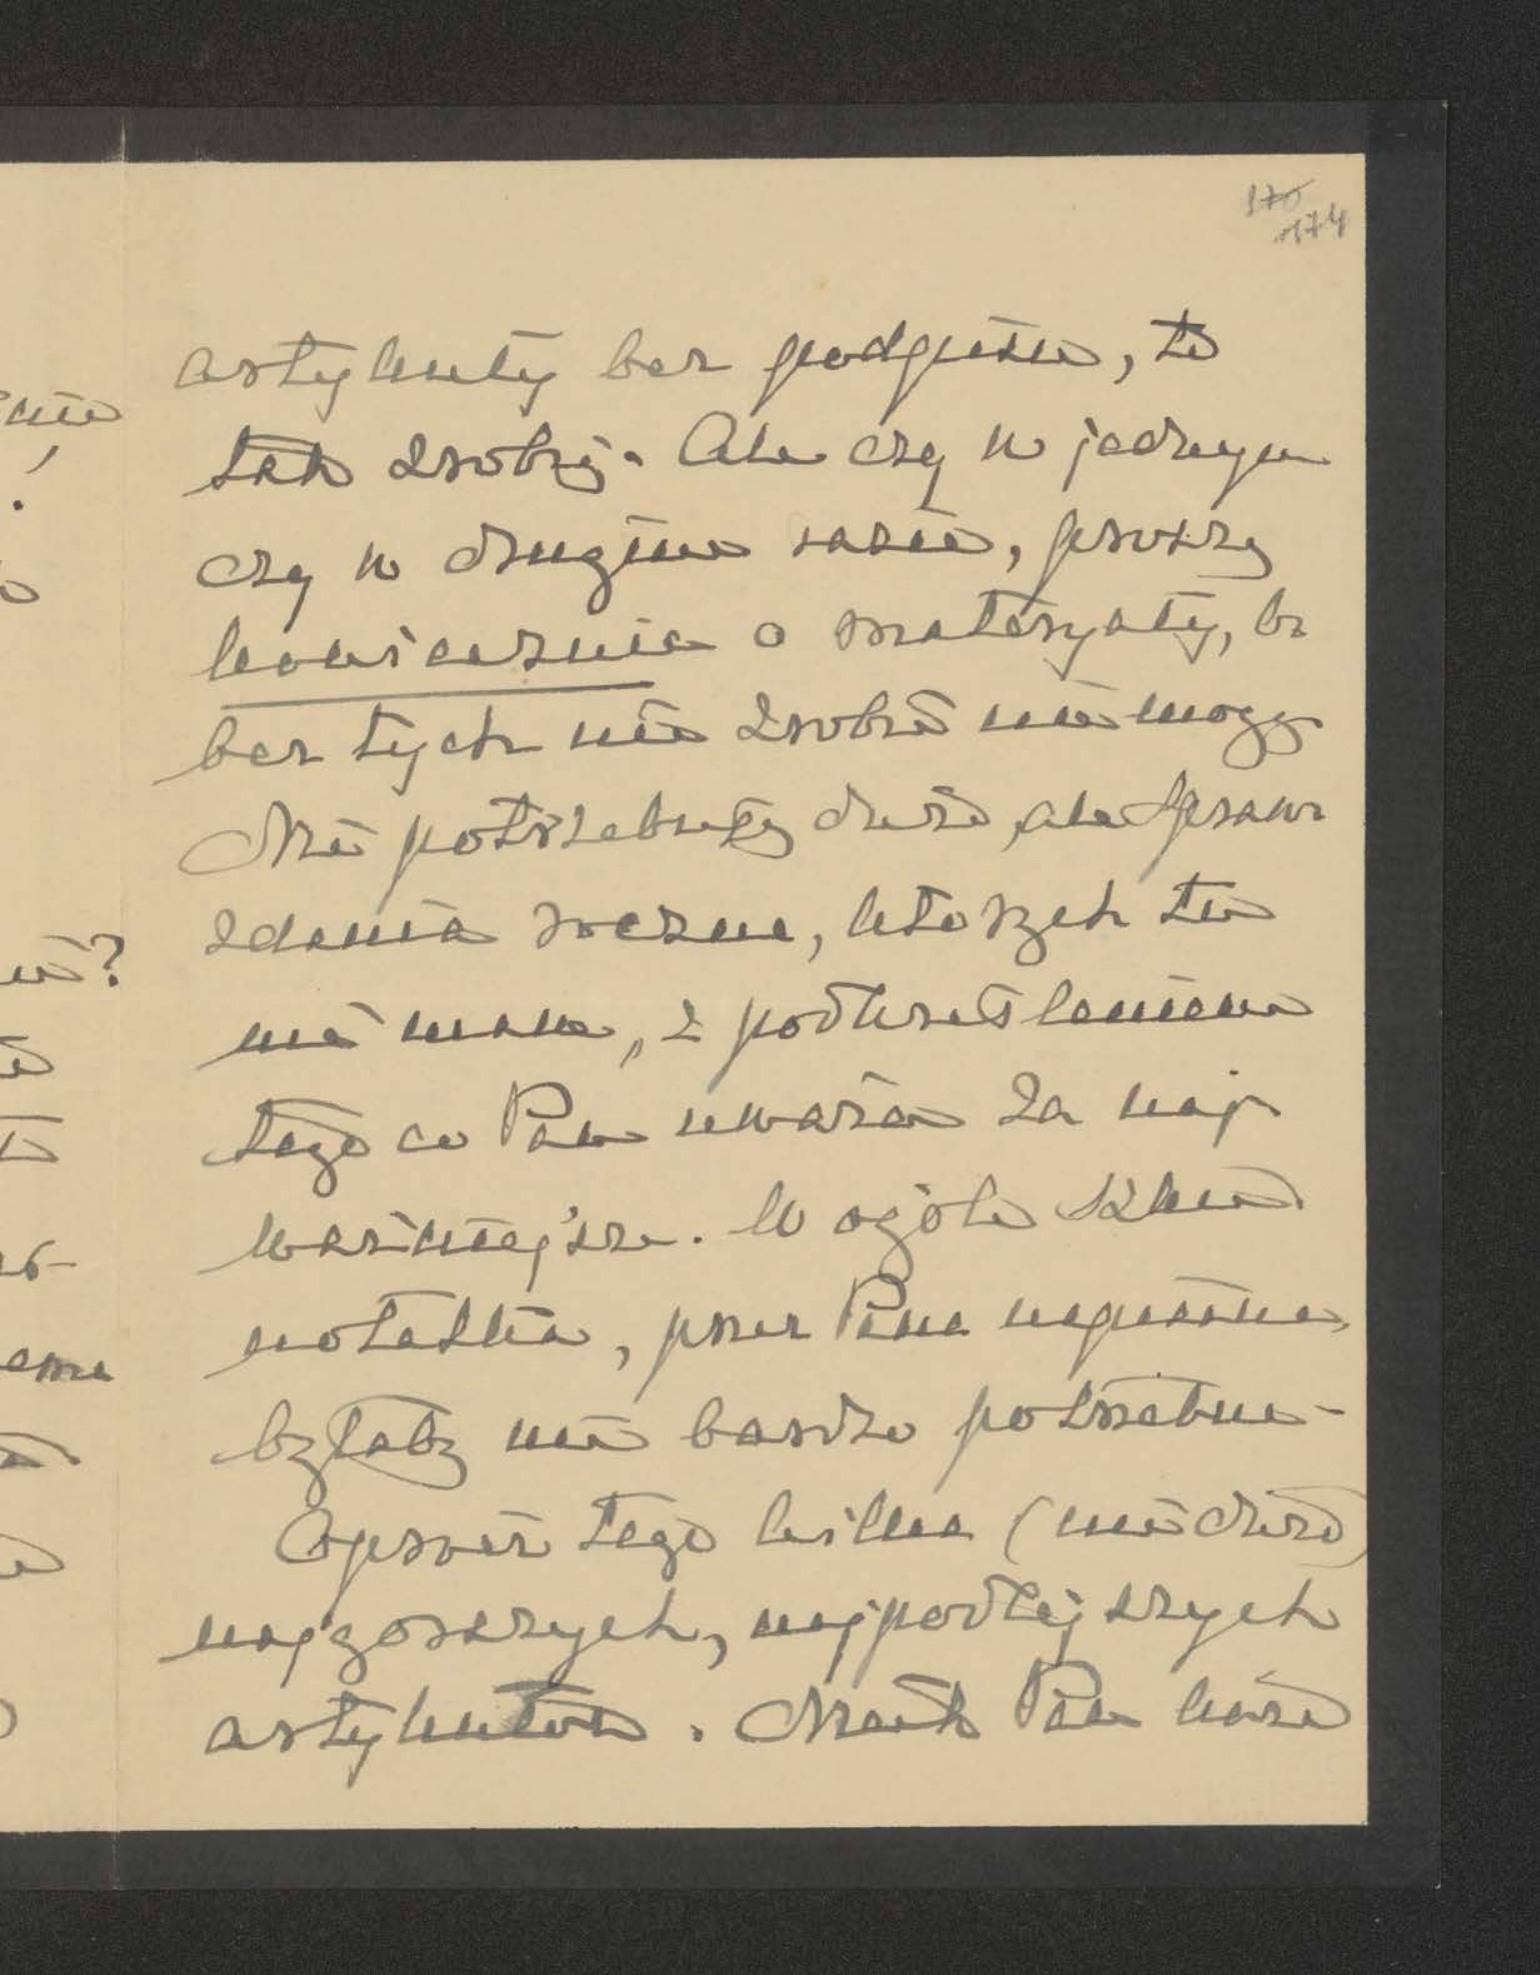 170
174
artykuły bez podpisu, to
tak zrobię. Ale czy w jednym
czy w drugim razie, proszę
koniecznie o materyały, bo
bez tych nic zrobić nie mogę
Nie potrzebuję dużo, ale spraw
zdania roczne, których tu
nie mam, z podkreśleniem
tego co Pan uważa za naj
ważniejsze. W ogóle
notatka, przez Pana napisana,
byłaby mi bardzo potrzebna-
Oprócz tego kilka (nie dużo)
najgorszych, najpodlejszych
artykułów. Niech Pan każe
nie
?